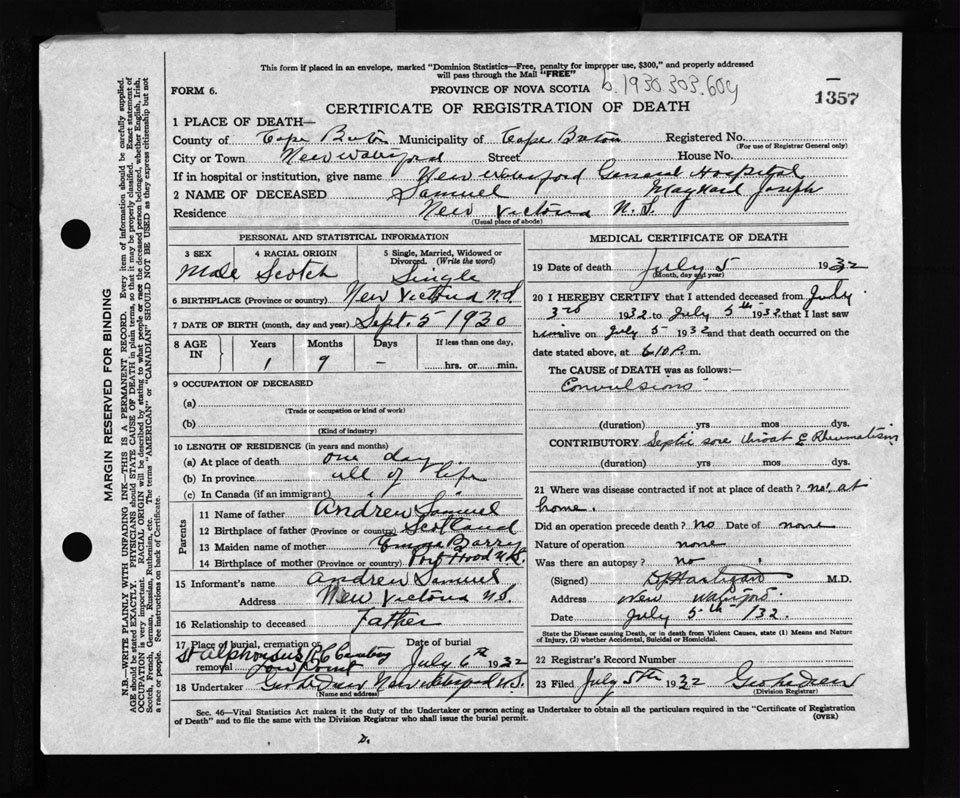 This form if placed in an envelope, marked "Dominion Statistics—Free, penalty for improper use, $300," and properly addressed
will pass through the Mail "FREE"
FORM 6.
PROVINCE OF NOVA SCOTIA b.1930.303.609
1357
CERTIFICATE OF REGISTRATION OF DEATH
1 PLACE OF DEATH—
County of Cape Breton Municipality of Cape Breton Registered No.
(For use of Registrar General only)
City or Town New Waterford Street House No.
If in hospital or institution, give name New Waterford General Hospital
2 NAME OF DECEASED Samuel Maynard Joseph
Residence New Victoria N.S.
(Usual place of abode)
PERSONAL AND STATISTICAL INFORMATION
3 SEX 4 RACIAL ORIGIN 5 Single, Married, Widowed or
Divorced. (Write the word)
Male Scotch Single
6 BIRTHPLACE (Province or country) New Victoria N.S.
7 DATE OF BIRTH (month, day and year) Sept. 5 1930
8 AGE IN Years Months Days If less than one day,
1 9 – hrs. or min.
9 OCCUPATION OF DECEASED
(a)
(Trade or occupation or kind of work)
(b)
(Kind of industry)
10 LENGTH OF RESIDENCE (in years and months)
(a) At place of death one day
(b) In province all of life
(c) In Canada (if an immigrant) " "
Parents
11 Name of father Andrew Samuel
12 Birthplace of father (Province or country) Scotland
13 Maiden name of mother Emma Barry
14 Birthplace of mother (Province or country) Port Hood N.S.
15 Informant's name Andrew Samuel
Address New Victoria N.S.
16 Relationship to deceased Father
17 Place of burial, cremation or Date of burial
St Alphonsus R C Cemetery
removal Low Point July 6th 1932
18 Undertaker Geo New Waterford N.S.
(Name and address)
MEDICAL CERTIFICATE OF DEATH
19 Date of death July 5 1932
(Month, day and year)
20 I HEREBY CERTIFY that I attended deceased from July
3rd 1932 to July 5th 1932 that I last saw
him alive on July 5 1932 and that death occurred on the
date stated above, at 6.10 P. m.
The CAUSE of DEATH was as follows:—
Convulsions
(duration) yrs mos dys.
CONTRIBUTORY Septic sore throat & Rheumatism
(duration) yrs mos dys.
21 Where was disease contracted if not at place of death? no! at
home.
Did an operation precede death? No Date of none
Nature of operation none
Was there an autopsy? no
(Signed) M.D.
Address New Waterford
Date July 5th /32.
State the Disease causing Death, or in death from Violent Causes, state (1) Means and Nature
of Injury, (2) whether Accidental, Suicidal or Homicidal.
22 Registrar's Record Number
23 Filed July 5th 1932 Geo
(Division Registrar)
Sec. 46—Vital Statistics Act makes it the duty of the Undertaker or person acting as Undertaker to obtain all the particulars required in the "Certificate of Registration
of Death" and to file the same with the Division Registrar who shall issue the burial permit.
(OVER)
MARGIN RESERVED FOR BINDING
N.B.—WRITE PLAINLY WITH UNFADING INK—THIS IS A PERMANENT RECORD. Every item of information should be carefully supplied.
AGE should be stated EXACTLY. PHYSICIANS should STATE CAUSE OF DEATH in plain terms, so that it may be properly classified. Exact statement of
OCCUPATION is very important. RACIAL ORIGIN will be described by stating to what people or race the deceased person belonged, whether English, Irish,
Scotch, French, German, Russian, Ruthenian, etc. The terms "AMERICAN" or "CANADIAN" SHOULD NOT BE USED as they express citizenship but not
a race or people. See instructions on back of Certificate.